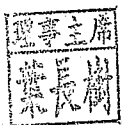 理事主席
葉長樹